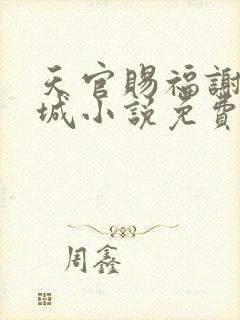 天官賜福謝
城小說免費
周鑫